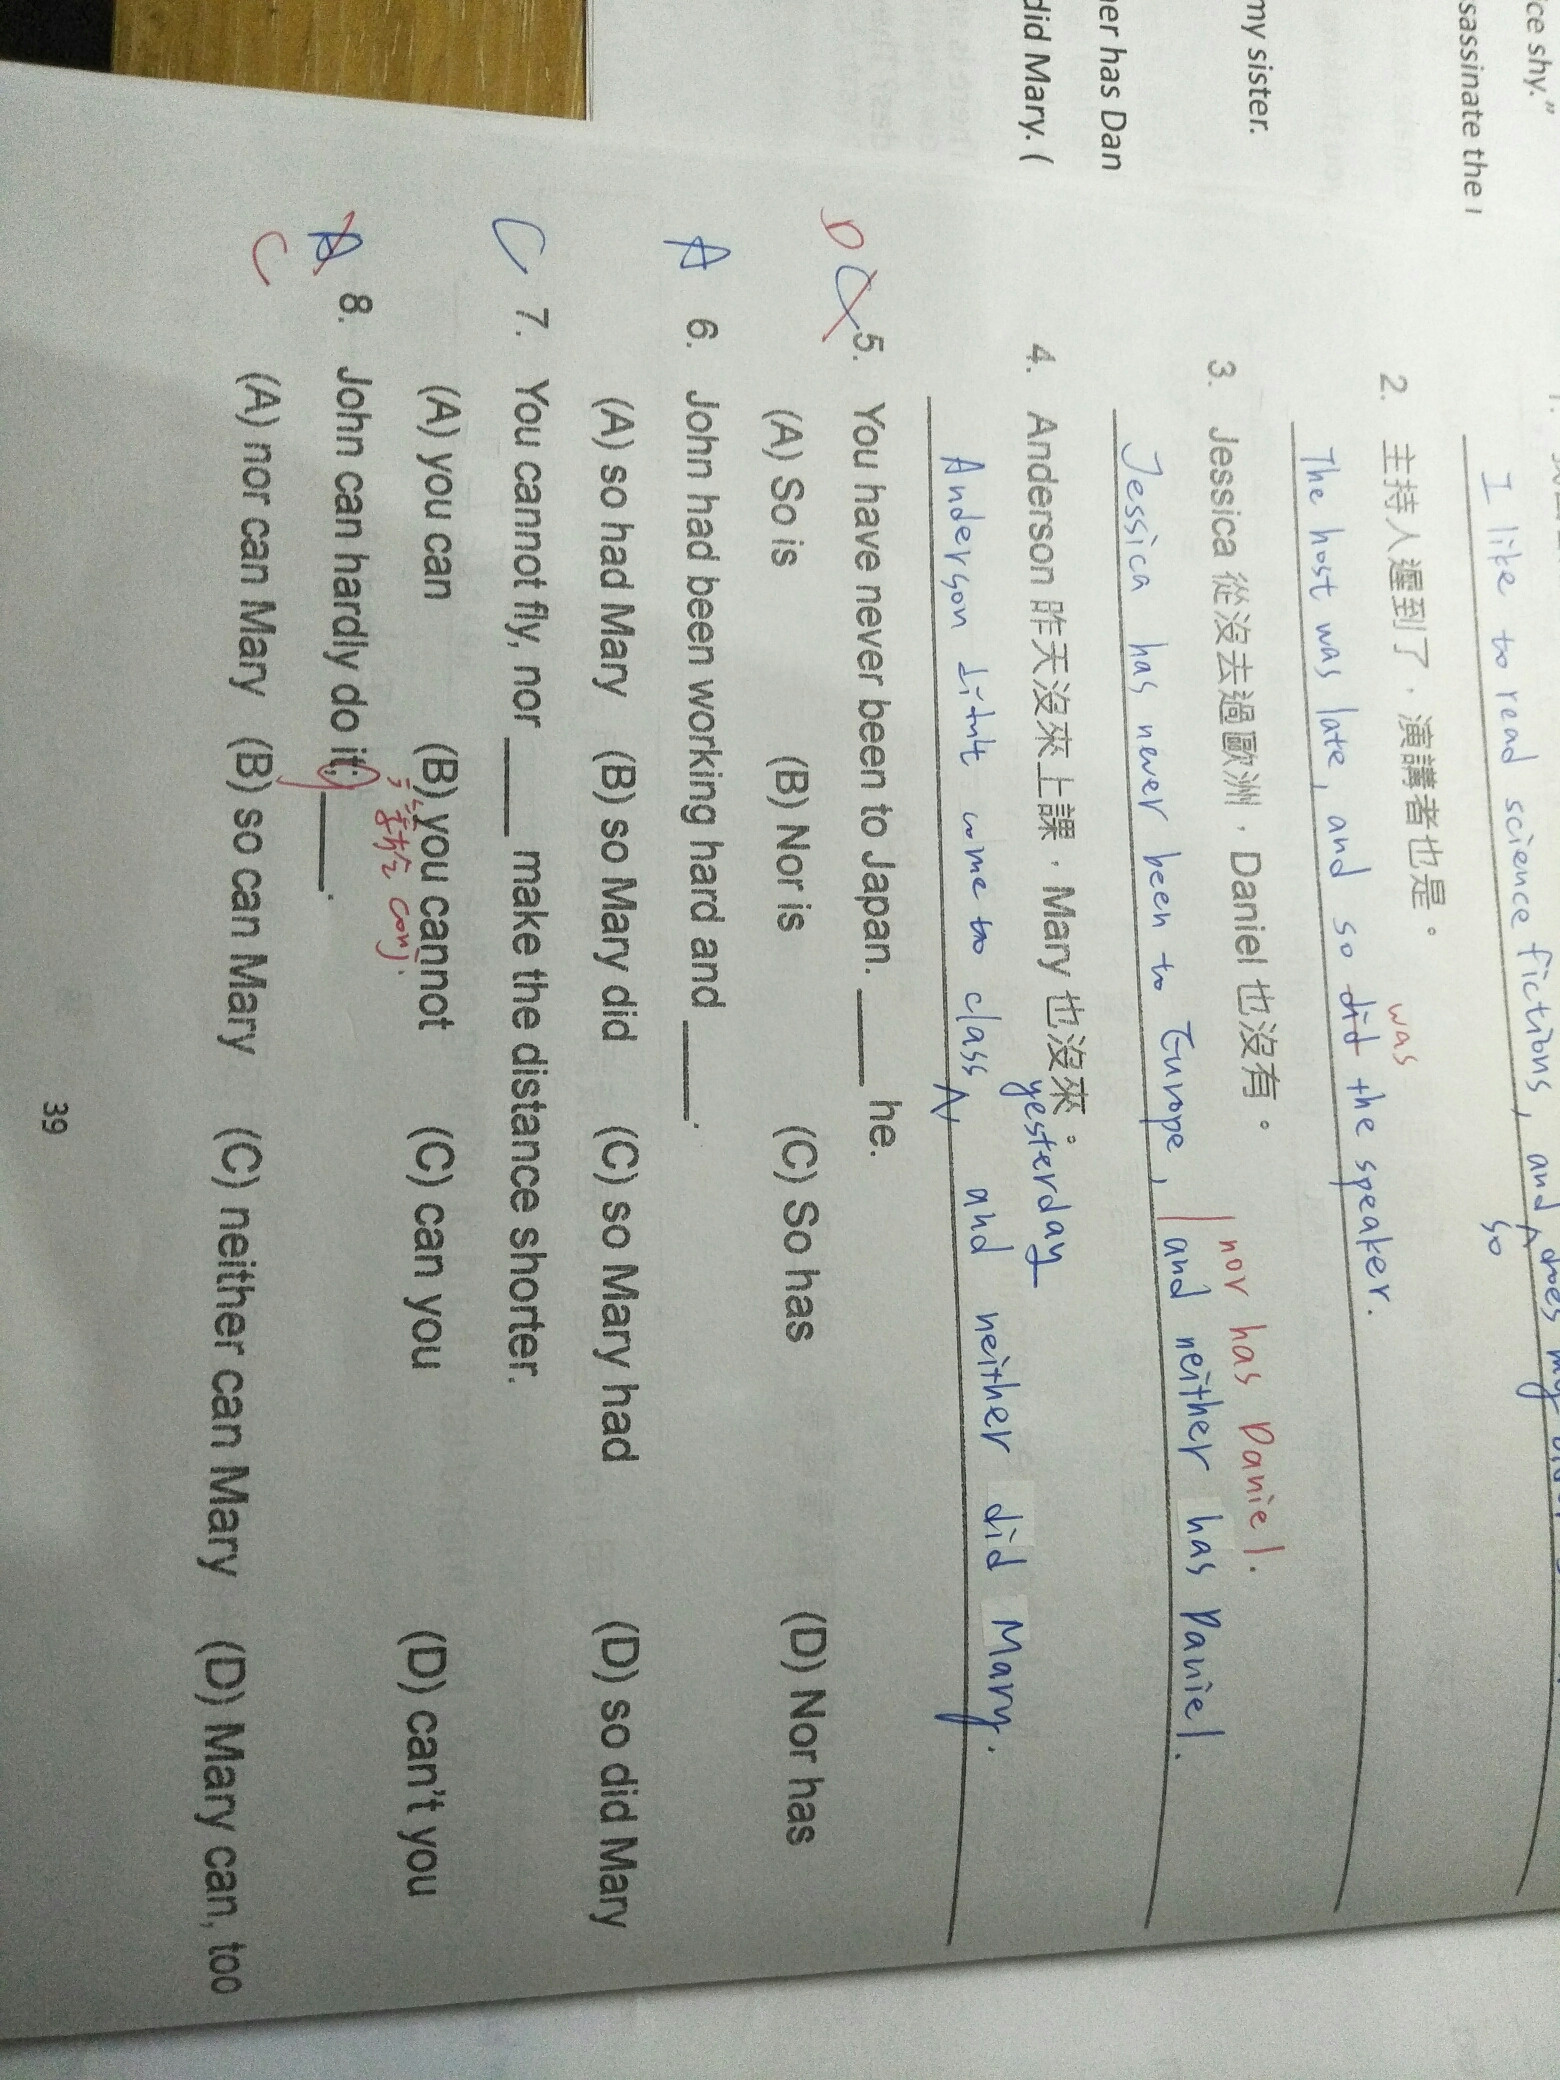 ice shy."
sassinate the
my sister.
her has Dan
did Mary. (
I like to read science fictions, and does my
so
2. 主持人遲到了，演講者也是。
was
The host was late, and so did the speaker.
3. Jessica 從沒去過歐洲，Daniel 也沒有。
nor has Daniel.
Jessica has never been to Europe, and neither has Daniel.
4. Anderson 昨天沒來上課，Mary 也沒來。
yesterday
Anderson didn't come to class and neither did Mary.
D C 5. You have never been to Japan. ____ he.
(A) So is (B) Nor is (C) So has (D) Nor has
A 6. John had been working hard and ____.
(A) so had Mary (B) so Mary did (C) so Mary had (D) so did Mary
C 7. You cannot fly, nor ____ make the distance shorter.
(A) you can (B) you cannot (C) can you (D) can't you
A 8. John can hardly do it; ____.
; conj.
C (A) nor can Mary (B) so can Mary (C) neither can Mary (D) Mary can, too
39